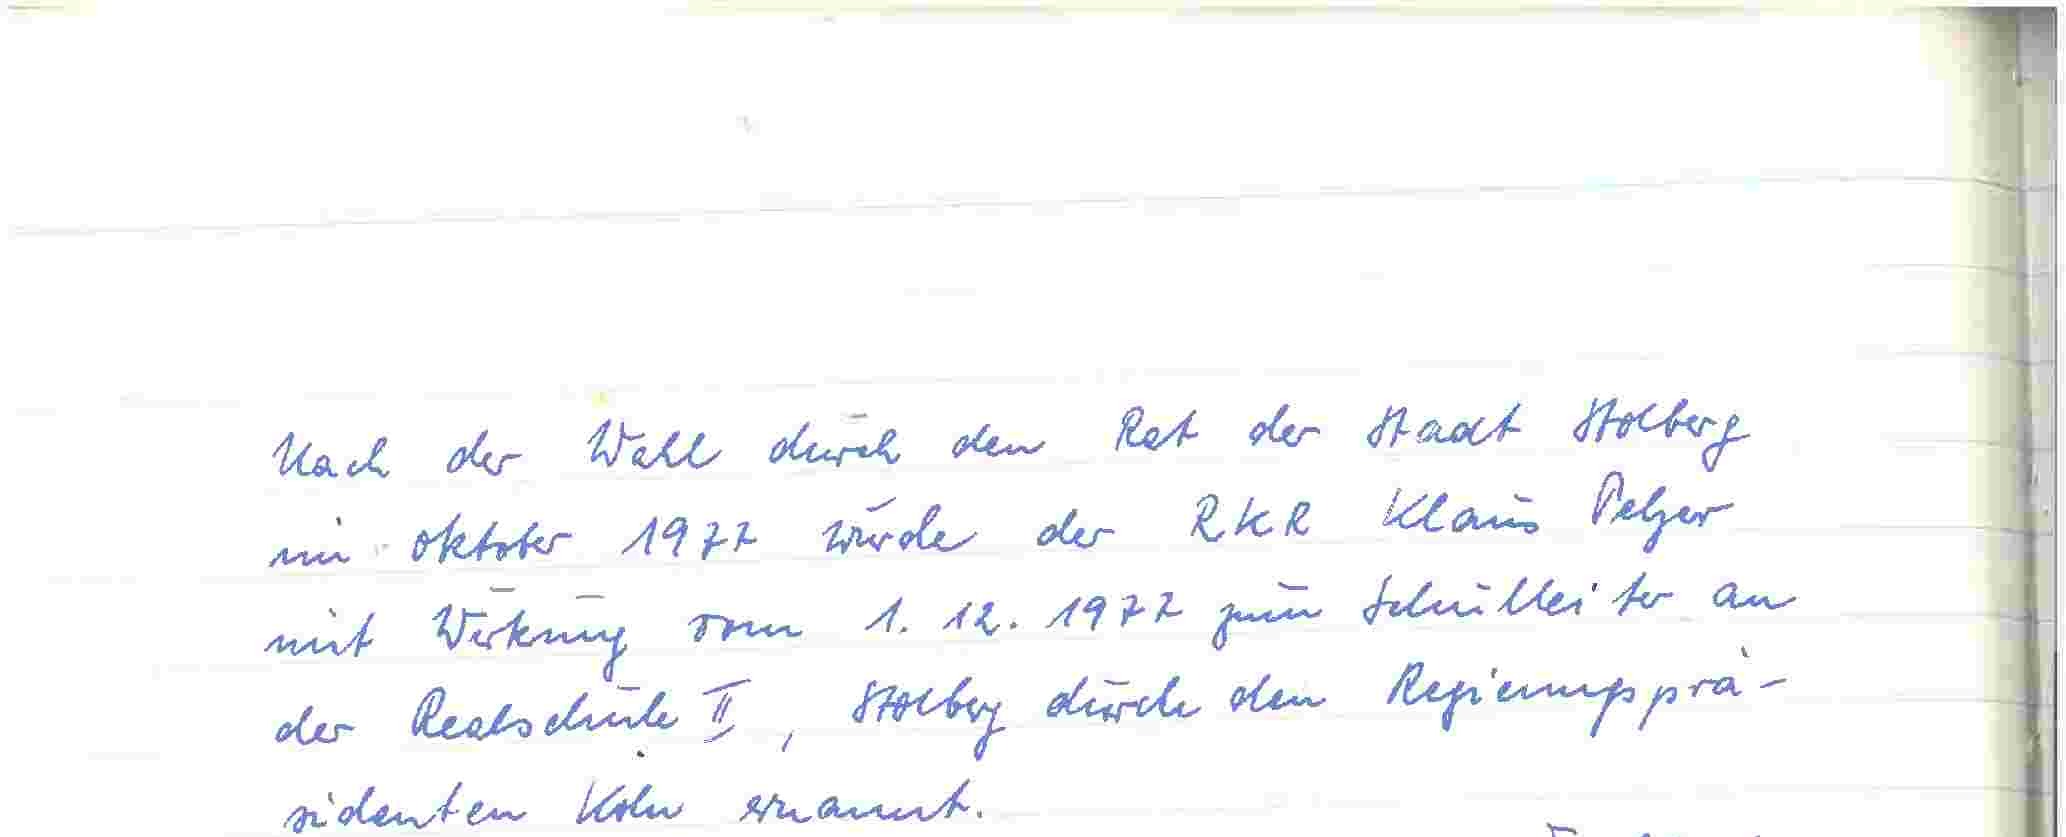 Nach der Wahl durch den Rat der Stadt Stolberg
im Oktober 1977 wurde der RKR Klaus Pelzer
mit Wirkung vom 1. 12. 1977 zum Schulleiter an
der Realschule II, Stolberg durch den Regierungsprä-
sidenten Köln ernannt.